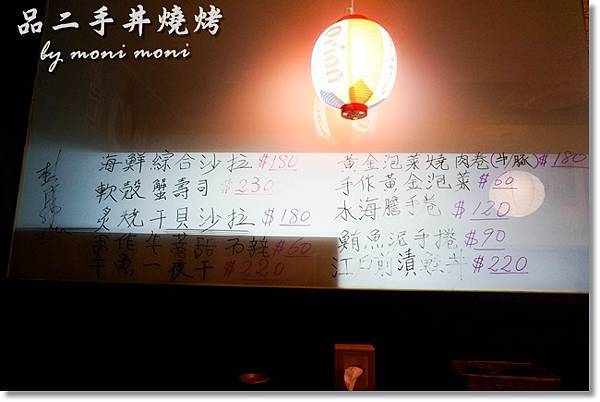 品二手丼燒烤
by moni moni
orion
海鮮綜合沙拉 $180
軟殼蟹壽司 $230
炙燒干貝沙拉 $180
$60
干魚一夜干 $220
黃金泡菜燒肉卷(牛/豚) $180
手作黃金泡菜 $60
水海膽手卷 $120
鮪魚泥手捲 $90
$220